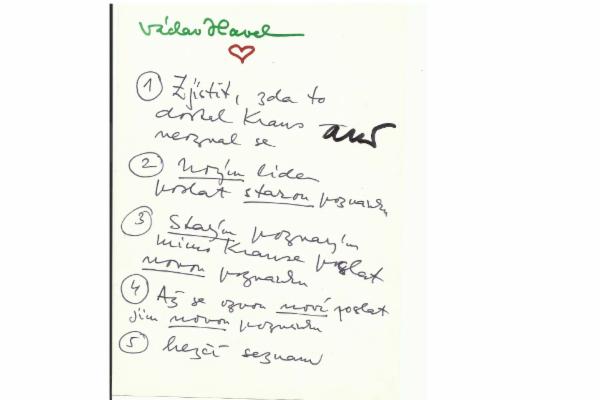 Václav Havel
① Zjistit, zda to
dostal Kraus ANO
neozval se
② Novým lidem
poslat starou pozvánku
③ Starým pozvaným
mimo Krause poslat
novou pozvánku
④ Až se ozvou noví poslat
jim novou pozvánku
⑤ hezčí seznam